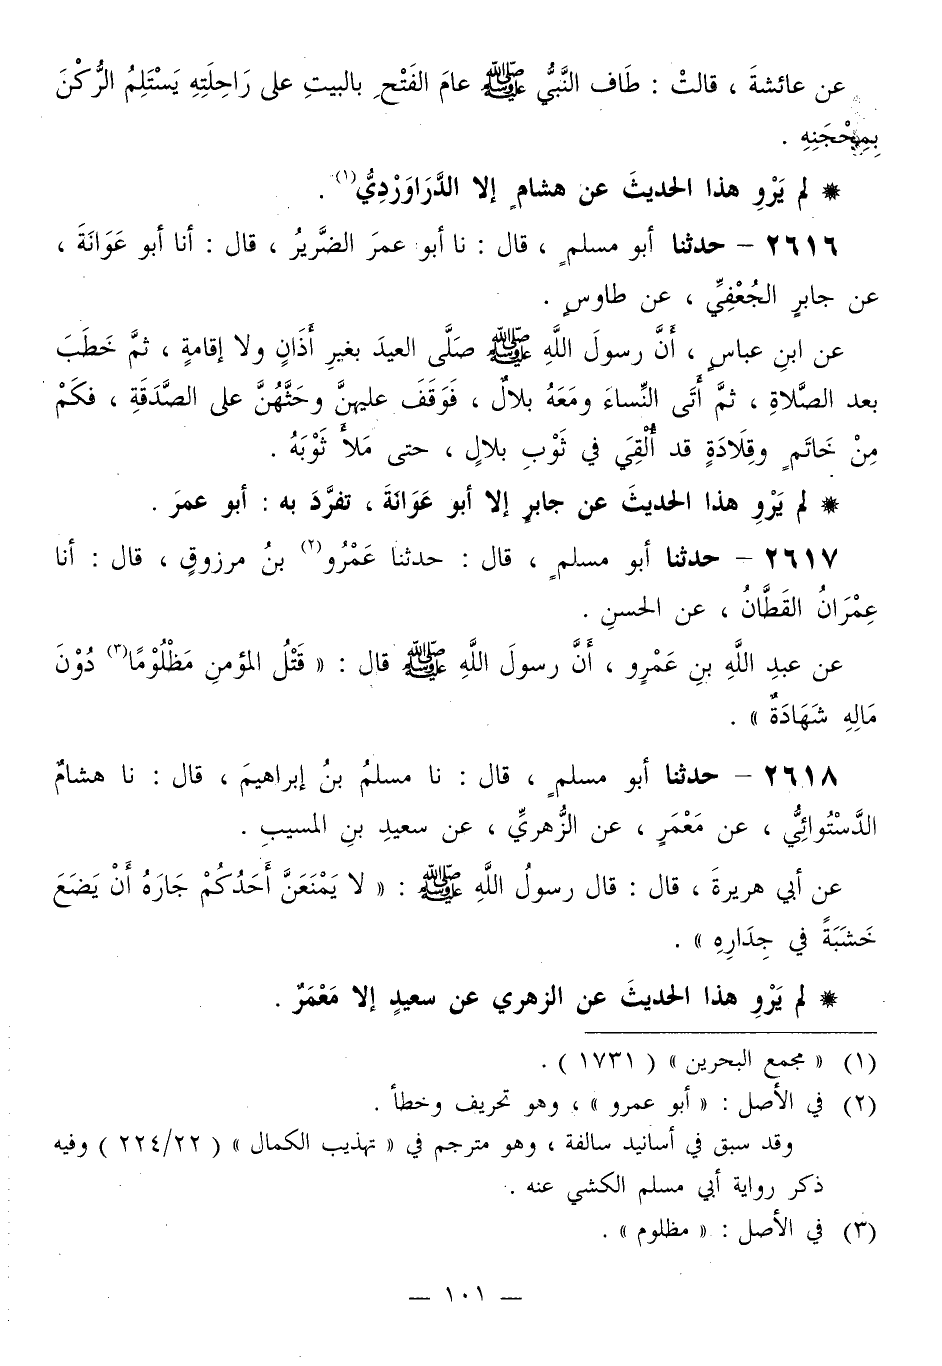 عن عائشةَ ، قالتْ : طَاف النَّبيُّ ﷺ عامَ الفَتْحِ بالبيتِ على رَاحِلَتِهِ يَسْتَلِمُ الرُّكْنَ
بِمِحْجَنِهِ .
* لم يَرْوِ هذا الحديثَ عن هشامٍ إلا الدَّرَاوَرْدِيُّ(١) .
٢٦١٦ – حدثنا أبو مسلمٍ ، قال : نا أبو عمرَ الضَّريرُ ، قال : أنا أبو عَوَانَةَ ،
عن جابرٍ الجُعْفِيِّ ، عن طاوسٍ .
عن ابنِ عباسٍ ، أَنَّ رسولَ اللَّهِ ﷺ صلَّى العيدَ بغيرِ أَذَانٍ ولا إقامةٍ ، ثمَّ خَطَبَ
بعد الصَّلاةِ ، ثمَّ أَتَى النِّساءَ ومَعَهُ بلالٌ ، فَوَقَفَ عليهنَّ وحَثَّهُنَّ على الصَّدَقَةِ ، فكَمْ
مِنْ خَاتَمٍ وقِلادَةٍ قد أُلْقِيَ في ثَوْبِ بلالٍ ، حتى مَلأَ ثَوْبَهُ .
* لم يَرْوِ هذا الحديثَ عن جابرٍ إلا أبو عَوَانَةَ ، تفرَّدَ به : أبو عمرَ .
٢٦١٧ – حدثنا أبو مسلمٍ ، قال : حدثنا عَمْرُو(٢) بنُ مرزوقٍ ، قال : أنا
عِمْرَانُ القَطَّانُ ، عن الحسنِ .
عن عبدِ اللَّهِ بنِ عَمْرٍو ، أَنَّ رسولَ اللَّهِ ﷺ قال : « قَتْلُ المؤمنِ مَظْلُوْمًا(٣) دُوْنَ
مَالِهِ شَهَادَةٌ » .
٢٦١٨ – حدثنا أبو مسلمٍ ، قال : نا مسلمُ بنُ إبراهيمَ ، قال : نا هشامٌ
الدَّسْتُوائِيُّ ، عن مَعْمَرٍ ، عن الزُّهريِّ ، عن سعيدِ بنِ المسيبِ .
عن أبي هريرةَ ، قال : قال رسولُ اللَّهِ ﷺ : « لا يَمْنَعَنَّ أَحَدُكُمْ جَارَهُ أَنْ يَضَعَ
خَشَبَةً في جِدَارِهِ » .
* لم يَرْوِ هذا الحديثَ عن الزهري عن سعيدٍ إلا مَعْمَرٌ .
(١) « مجمع البحرين » ( ١٧٣١ ) .
(٢) في الأصل : « أبو عمرو » ، وهو تحريف وخطأ .
وقد سبق في أسانيد سالفة ، وهو مترجم في « تهذيب الكمال » ( ٢٢٤/٢٢ ) وفيه
ذكر رواية أبي مسلم الكشي عنه .
(٣) في الأصل : « مظلوم » .
— ١٠١ —